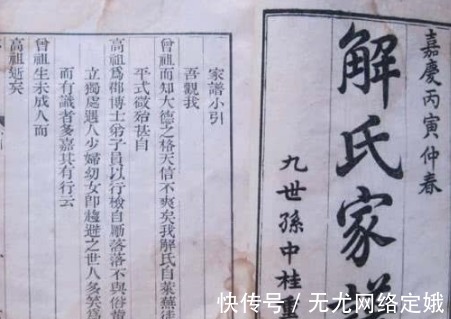 嘉慶丙寅仲春
解氏家譜
九世孫中桂
家譜小引
吾觀我
曾祖而知大德之格天信不爽矣我解氏自萊蕪徙
平式微殆甚自
高祖爲郡博士弟子員以行檢自厲落落不與俗
立獨處遇人少婦幼女卽趨避之世人多笑爲
而有識者多嘉其有行云
曾祖生未成人而
高祖逝矣
快传号 / 无尤网络定娥